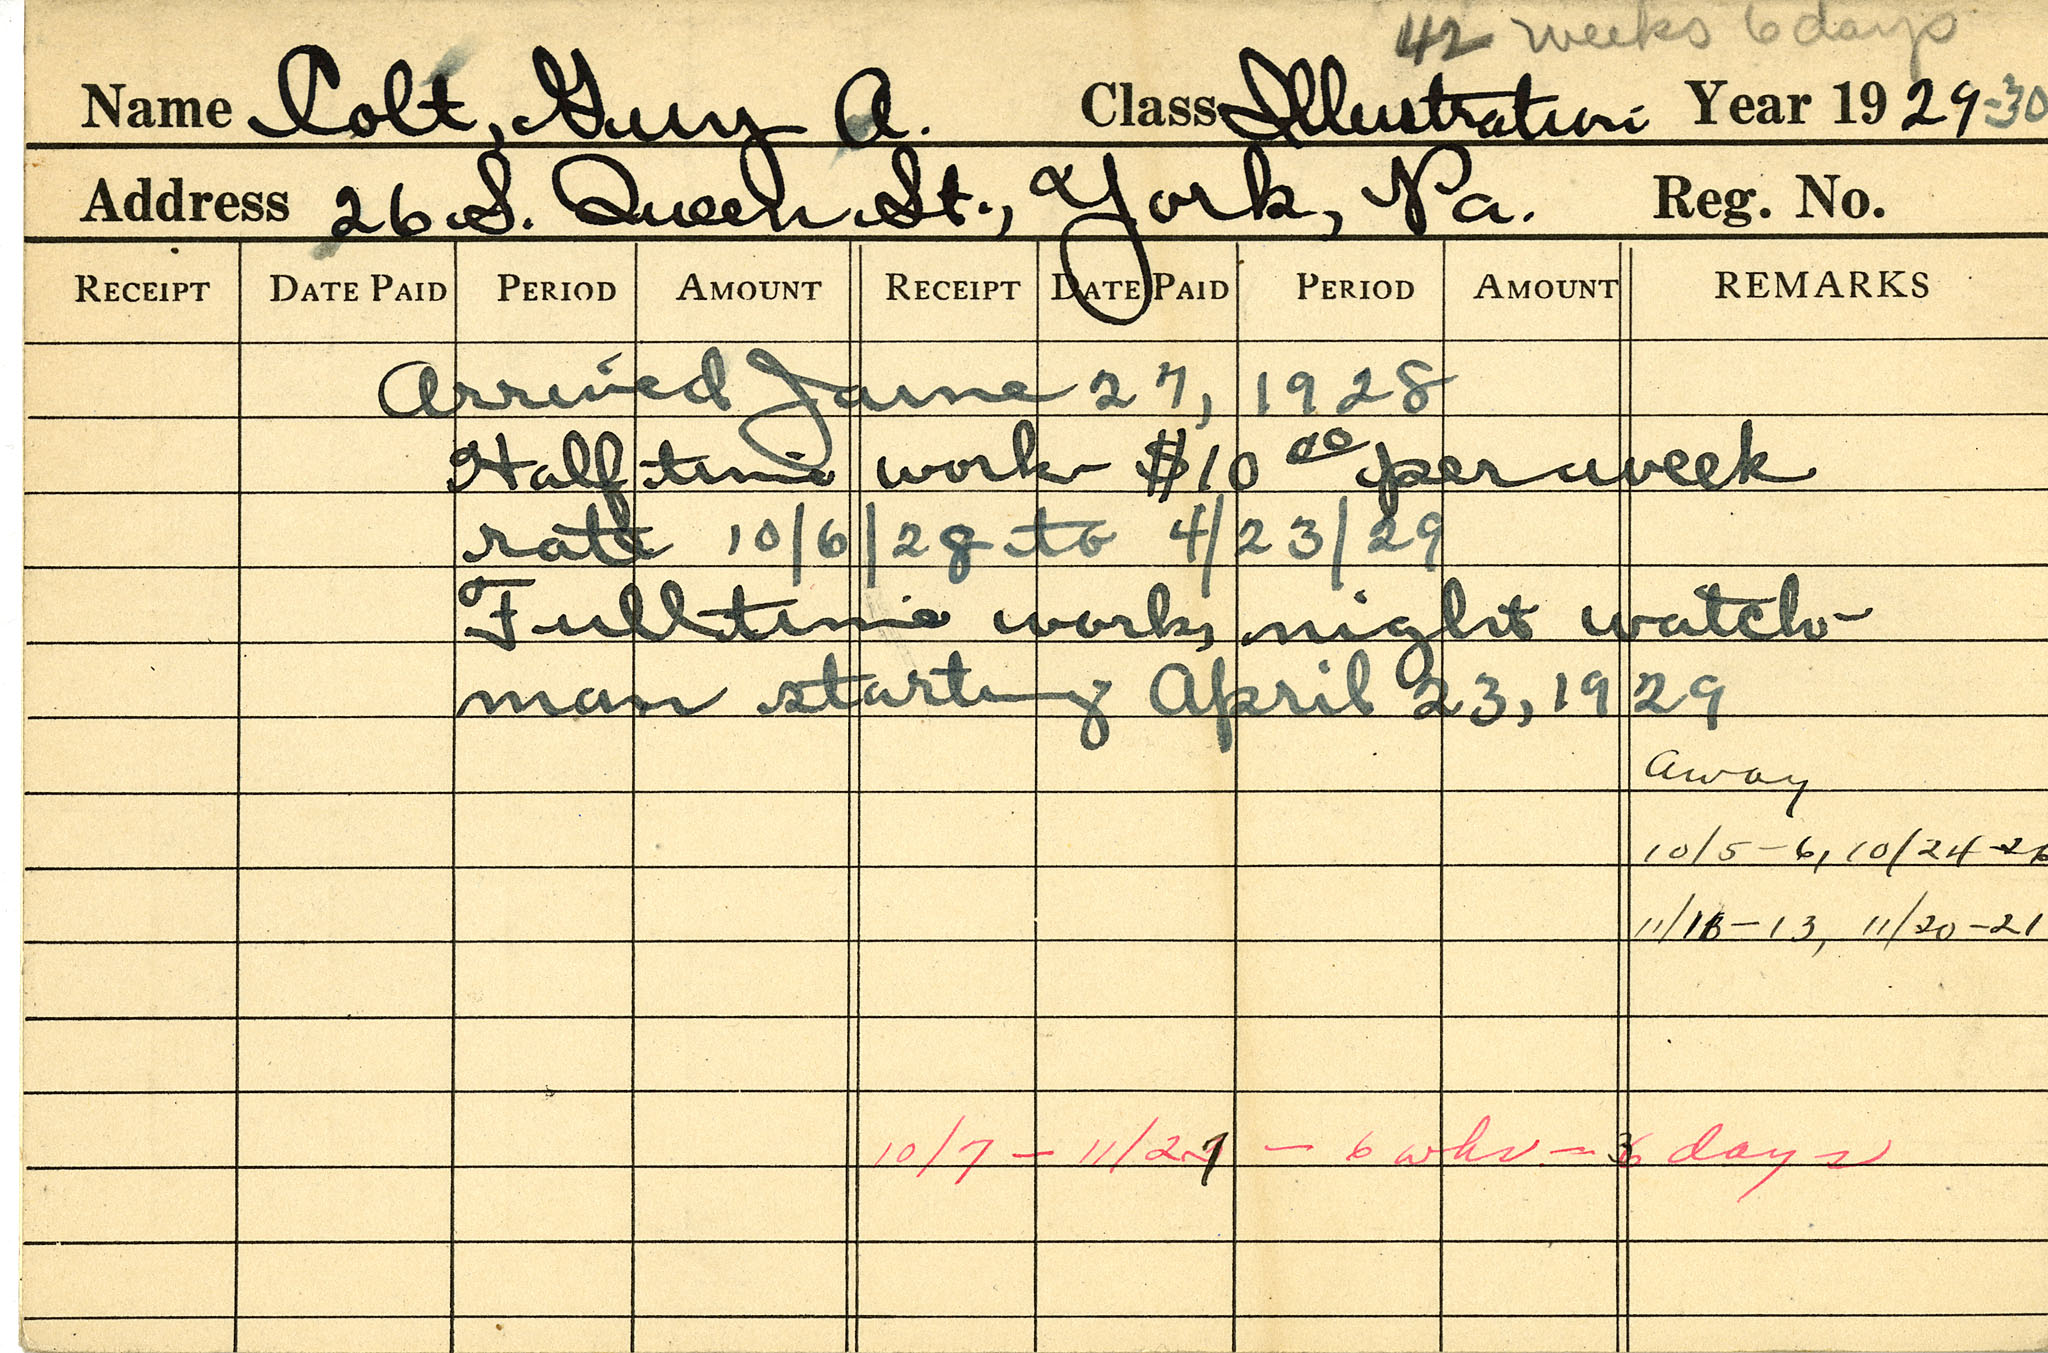 42 weeks 6 days
Name Colt, Guy A. Class Illustration Year 1929-30
Address 26 S. Queen St., York, Pa. Reg. No.
RECEIPT DATE PAID PERIOD AMOUNT RECEIPT DATE PAID PERIOD AMOUNT REMARKS
Arrived June 27, 1928
Half time work $10 00 per week
rate 10/6/28 to 4/23/29
Full time work, night watch-
man starting April 23, 1929
Away
10/5-6, 10/24-26
11/ -13, 11/20-21
10/7 - 11/21 - 6 wks - 3 days